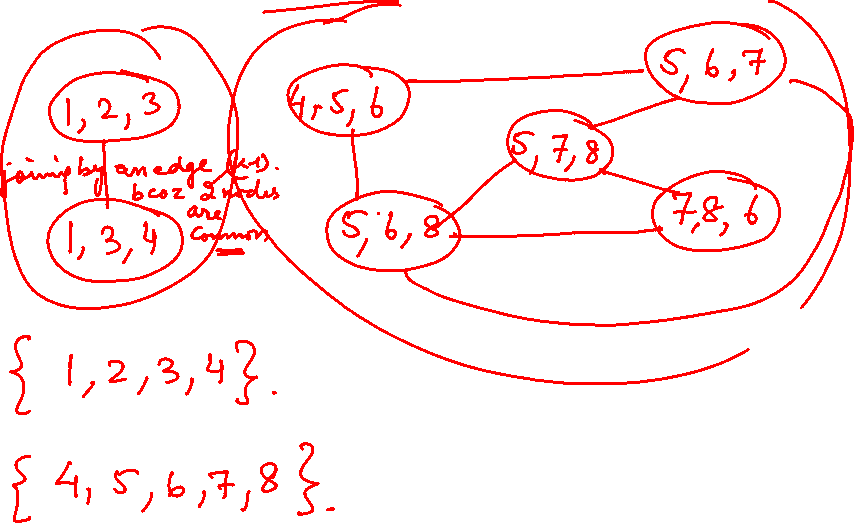 1, 2, 3
joining by an edge (k-1).
bcoz 2 nodes
are
common
1, 3, 4
4, 5, 6
5, 6, 7
5, 7, 8
5, 6, 8
7, 8, 6
{ 1, 2, 3, 4 }.
{ 4, 5, 6, 7, 8 }.